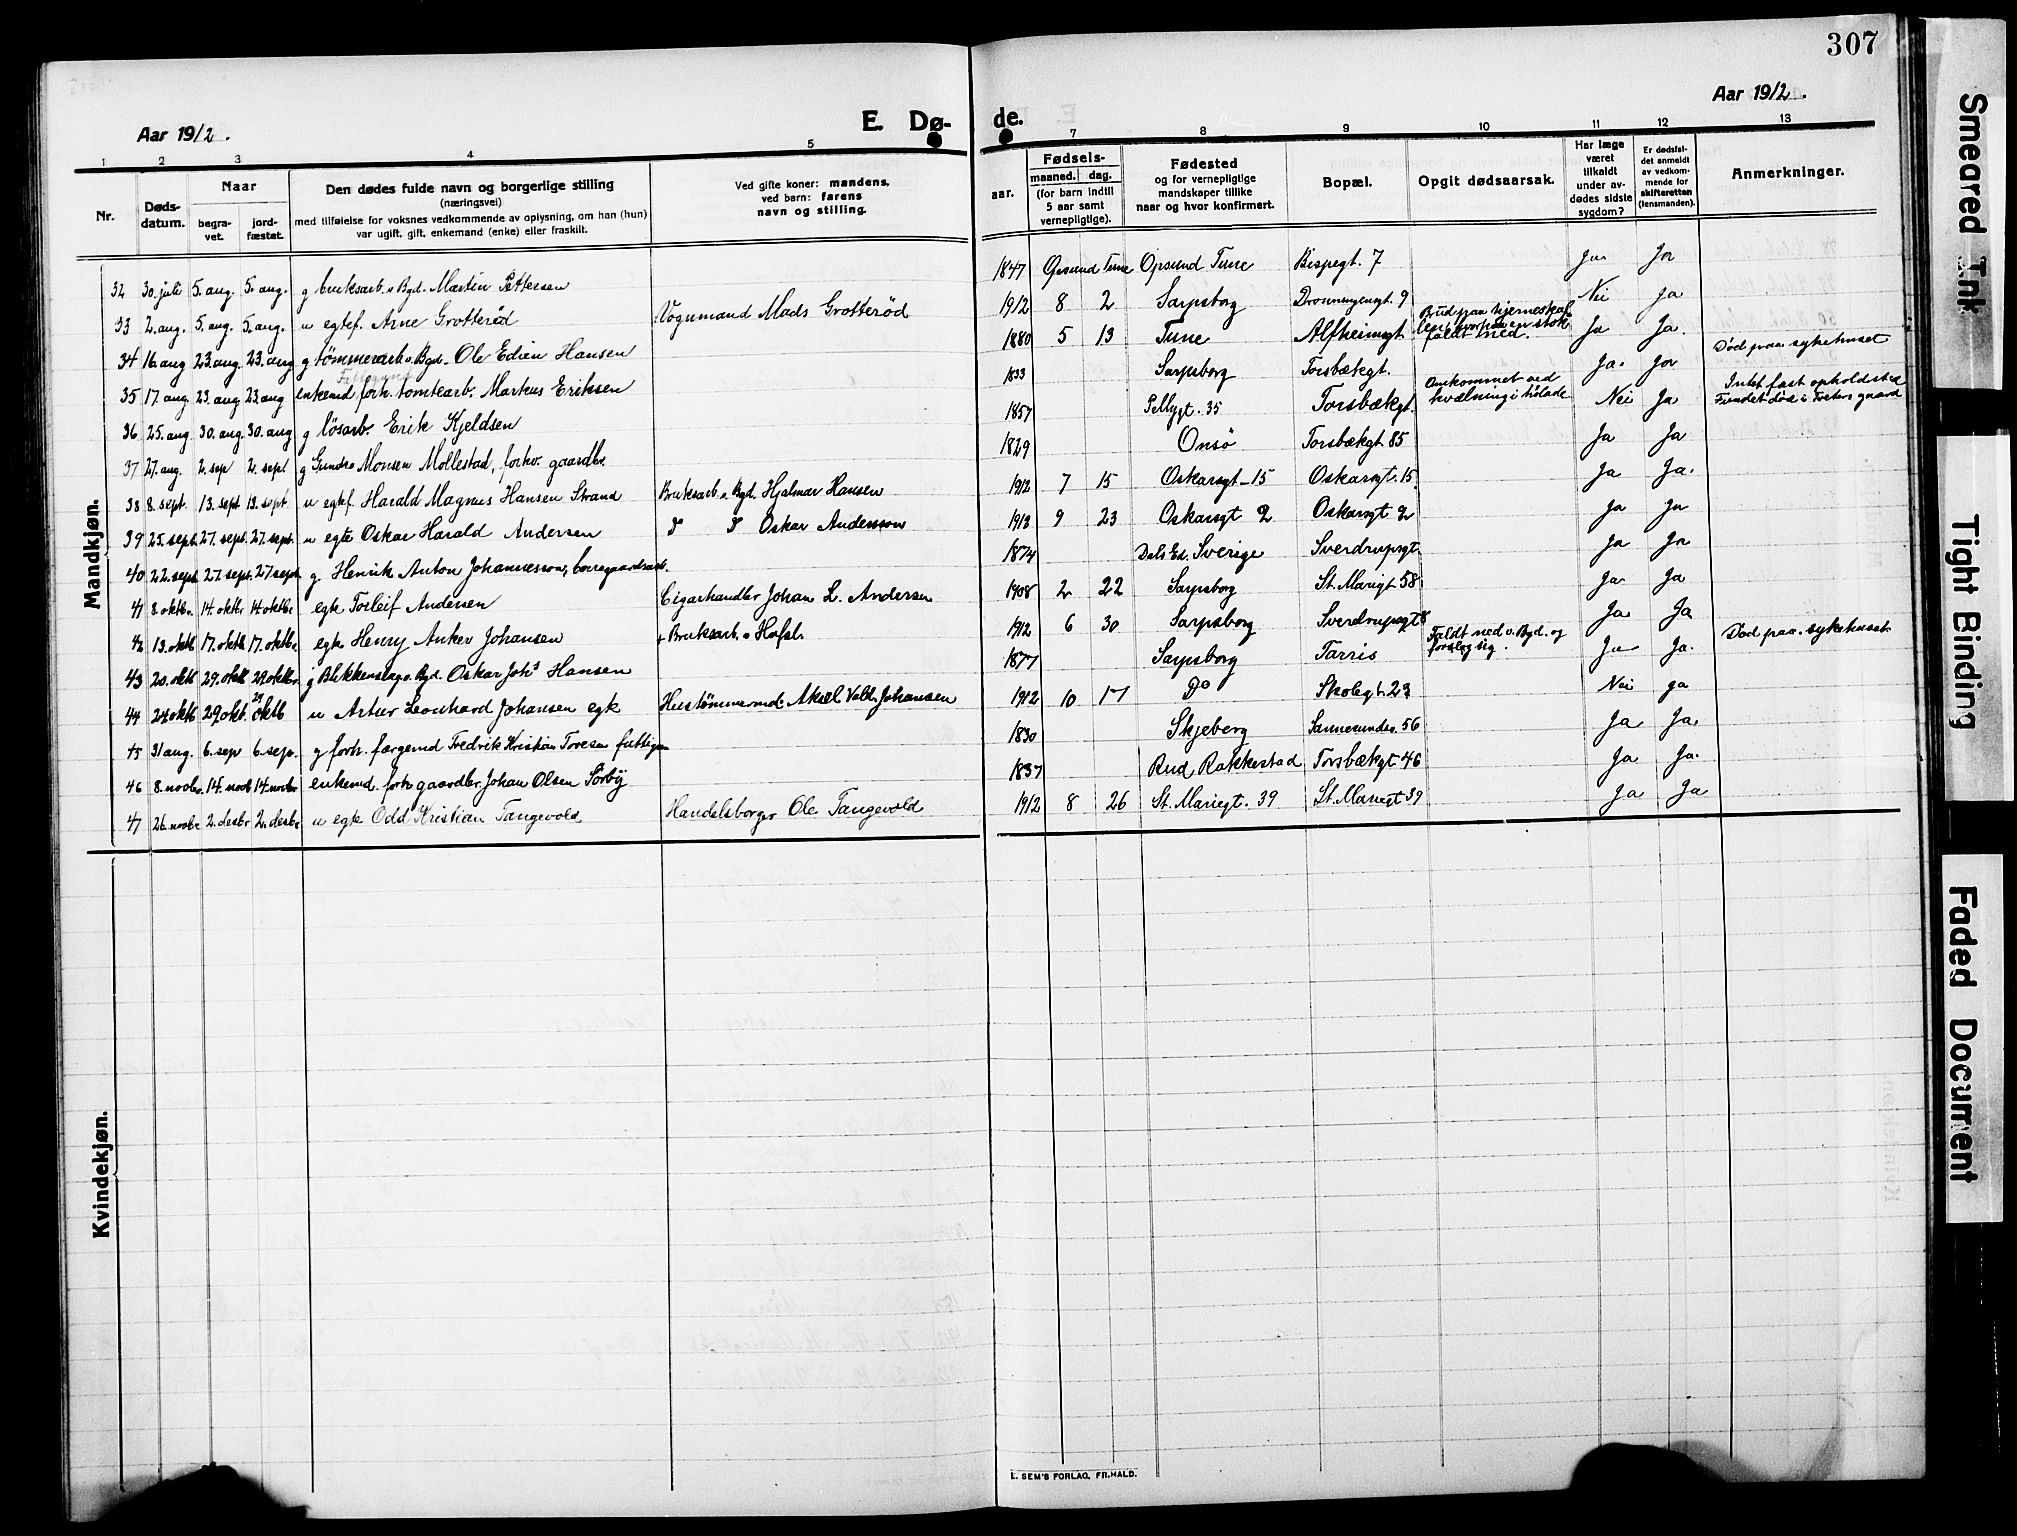 307
Aar 1912.
E. Dø-
de.
Aar 1912.
1 2 3 4 5 7 8 9 10 11 12 13
Nr.
Døds-
datum.
Naar
begra-
vet.
jord-
fæstet.
Den dødes fulde navn og borgerlige stilling
(næringsvei)
med tilføielse for voksnes vedkommende av oplysning, om han (hun)
var ugift, gift, enkemand (enke) eller fraskilt.
Ved gifte koner: mandens,
ved barn: farens
navn og stilling.
Fødsels-
aar. maaned. dag.
(for barn indtil
5 aar samt
vernepligtige).
Fødested
og for vernepligtige
mandskaper tillike
naar og hvor konfirmert.
Bopæl.
Opgit dødsaarsak.
Har læge
været
tilkaldt
under av-
dødes sidste
sygdom?
Er dødsfal-
det anmeldt
av vedkom-
mende for
skifteretten
(lensmanden).
Anmerkninger.
Mandkjøn.
32 30. juli 5. aug. 5. aug. g bruksarb. v Bgd. Martin Pettersen 1847 Opsund Tune Opsund Tune Bispegt. 7 Ja Ja
33 2. aug. 5. aug. 5. aug. u egtef. Arne Grotterød Vognmand Mads Grotterød 1912 8 2 Sarpsborg Dronningensgt. 9 Nei Ja
34 16. aug 23. aug. 23. aug g tømmerarb. v. Bgd. Ole Edien Hansen 1880 5 13 Tune Alfheimgt. Brud paa hjerneskal- len, hvorpaa en stok faldt ned. Ja Ja. Død paa sykehuset
35 17. aug. 23. aug 23. aug enkemd forh. tomtearb. Markus Eriksen 1833 Sarpsborg Torsbækgt. Ja. Ja
36 25. aug. 30. aug. 30. aug g løsarb. Erik Kjeldsen 1857 Pellygt. 35 Torsbækgt. Omkommet ved kvælning i hølade Nei Ja Intet fast opholdsted Fundet død i gaard
37 27. aug. 2. sep 2. sept g Gunder Monsen Møllestad, forhv. gaardbr. 1829 Onsø Torsbækgt. 85 Ja Ja
38 8. sept. 13. sept 13. sept u egtef. Harald Magnus Hansen Strand Bruksarb. v. Bgd. Hjalmar Hansen 1912 7 15 Oskarsgt. 15 Oskarsgt. 15 Ja Ja.
39 25. sept. 27. sept. 27. sept. u egte Oskar Harald Andersen Oskar Andersson 1912 9 23 Oskarsgt 2 Oskarsgt 2 Ja Ja
40 22. sept 27. sept. 27. sept g. Henrik Anton Johannesson, borregaardsarb. 1874 Dals Ed. Sverige Sverdrupsgt. Ja Ja
41 8. oktbr. 14. oktbr 14. oktbr egte Torleif Andersen Cigarhandler Johan L. Andersen 1908 2 22 Sarpsborg St. Marigt. 58 Ja Ja
42 13. oktb 17. oktb 17. oktbr. egte Henry Anker Johansen + Bruksarb. v Hafsl. 1912 6 30 Sarpsborg Sverdrupsgt Ja Ja
43 20. oktb 29. oktb 29. oktbr. g Blikkenslag. v. Bgd. Oskar Johs Hansen 1877 Sarpsborg Tarris Faldt ned v. Bgd. og forslog sig. Ja Ja. Død paa sykehuset.
44 24. oktb 29. oktb. 29 oktb u Artur Leonhard Johansen egte Hustømmermd. Aksel Valdr. Johansen 1912 10 17 Do Skolegt. 23 Nei ja
45 31 aug. 6. sep 6. sep. g forh. fargemd Fredrik Kristian Toresen fattigm 1830 Skjeberg Sannesundsv. 56 Ja Ja.
46 8. novbr. 14. novb 14. novbr enkemd. forhv gaardbr. Johan Olsen Sørby 1837 Rud Rakkestad Torsbækgt. 46 Ja Ja.
47 26. novbr 2. desbr 2. desbr u egte Odd Kristian Tangevold Handelsborger Ole Tangevold 1912 8 26 St. Mariegt. 39 St. Mariegt 39 Ja Ja
Kvindekjøn.
E. SEM'S FORLAG, FR.HALD.
Smeared Ink
Tight Binding
Faded Document